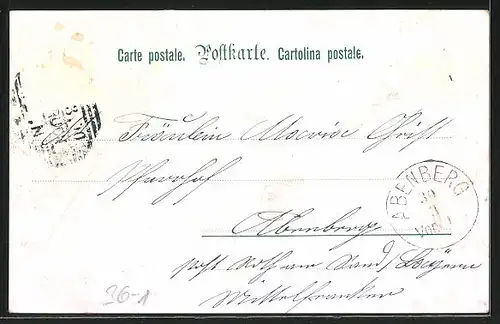 Carte postale. Postkarte. Cartolina postale.
Fräulein Marie Christ
Pfarrhof
Abenberg
post Roth am Sand/Bayern
Mittelfranken
ABENBERG
30
VOR
36-1